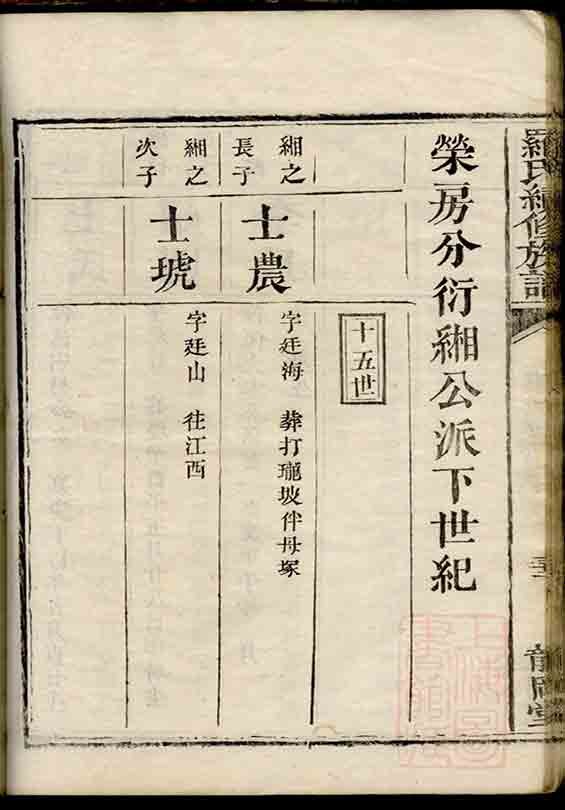 羅氏續修族譜
榮房分衍緗公派下世紀
十五世
緗之
長子
士農
字廷海 葬打瓏坡伴母塚
緗之
次子
士琥
字廷山 往江西